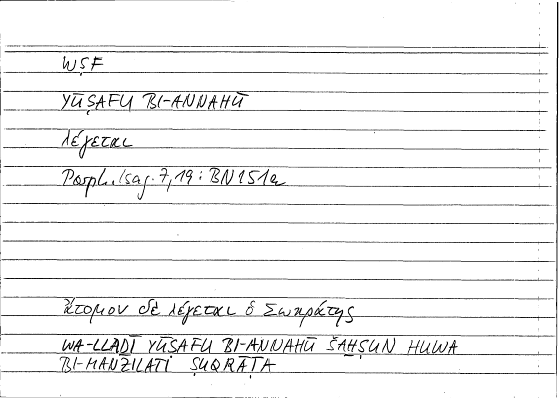 WṢF
YŪṢAFU BI-ANNAHŪ
λέγεται
Porph. Isag. 7,19 : BN 151a
ἄτομον δὲ λέγεται ὁ Σωκράτης
WA-LLAḎĪ YŪṢAFU BI-ANNAHŪ ŠAḪṢUN HUWA
BI-MANZILATI SUQRĀṬA